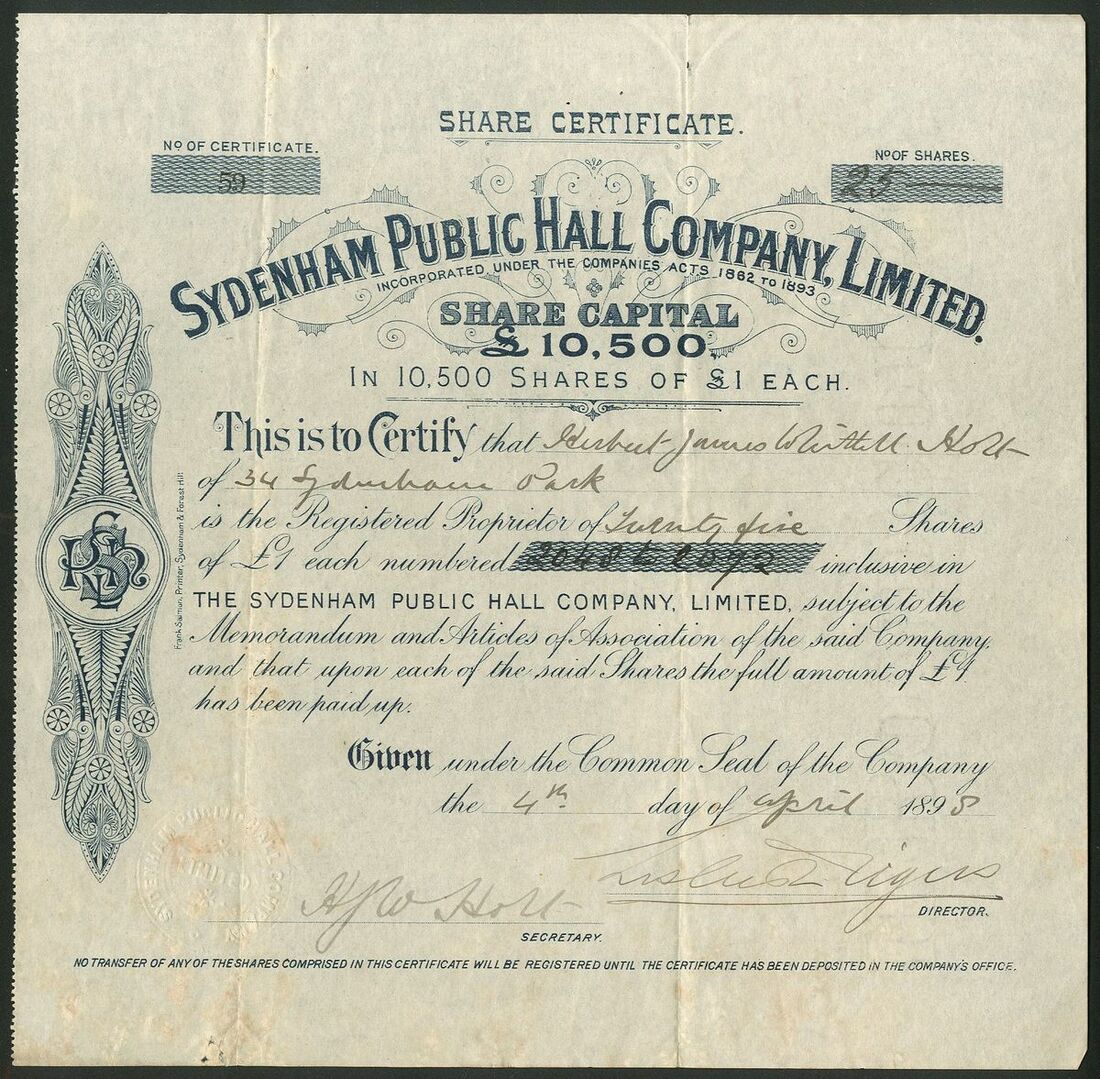 SHARE CERTIFICATE.
No OF CERTIFICATE.
59
No OF SHARES.
25
SYDENHAM PUBLIC HALL COMPANY, LIMITED.
INCORPORATED UNDER THE COMPANIES ACTS 1862 TO 1893
SHARE CAPITAL
£10,500.
IN 10,500 SHARES OF £1 EACH.
This is to Certify that Herbert James Holt
of 34 Sydenham Park
is the Registered Proprietor of Twenty five Shares
of £1 each numbered inclusive in
THE SYDENHAM PUBLIC HALL COMPANY, LIMITED, subject to the
Memorandum and Articles of Association of the said Company,
and that upon each of the said Shares the full amount of £1
has been paid up.
Given under the Common Seal of the Company
the 4th day of April 1898
H J W Holt
SECRETARY.
DIRECTOR.
NO TRANSFER OF ANY OF THE SHARES COMPRISED IN THIS CERTIFICATE WILL BE REGISTERED UNTIL THE CERTIFICATE HAS BEEN DEPOSITED IN THE COMPANY'S OFFICE.
Printer, Sydenham & Forest Hill.
SYDENHAM PUBLIC HALL COMPANY
LIMITED